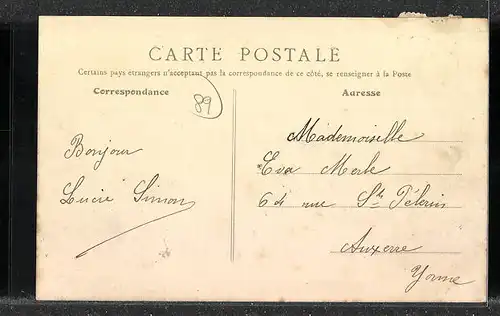 CARTE POSTALE
Certains pays étrangers n'acceptant pas la correspondance de ce côté, se renseigner à la Poste
Correspondance
Adresse
89
Bonjour
Lucie Simon
Mademoiselle
Eva Merle
64 rue St Pélerin
Auxerre
Yonne